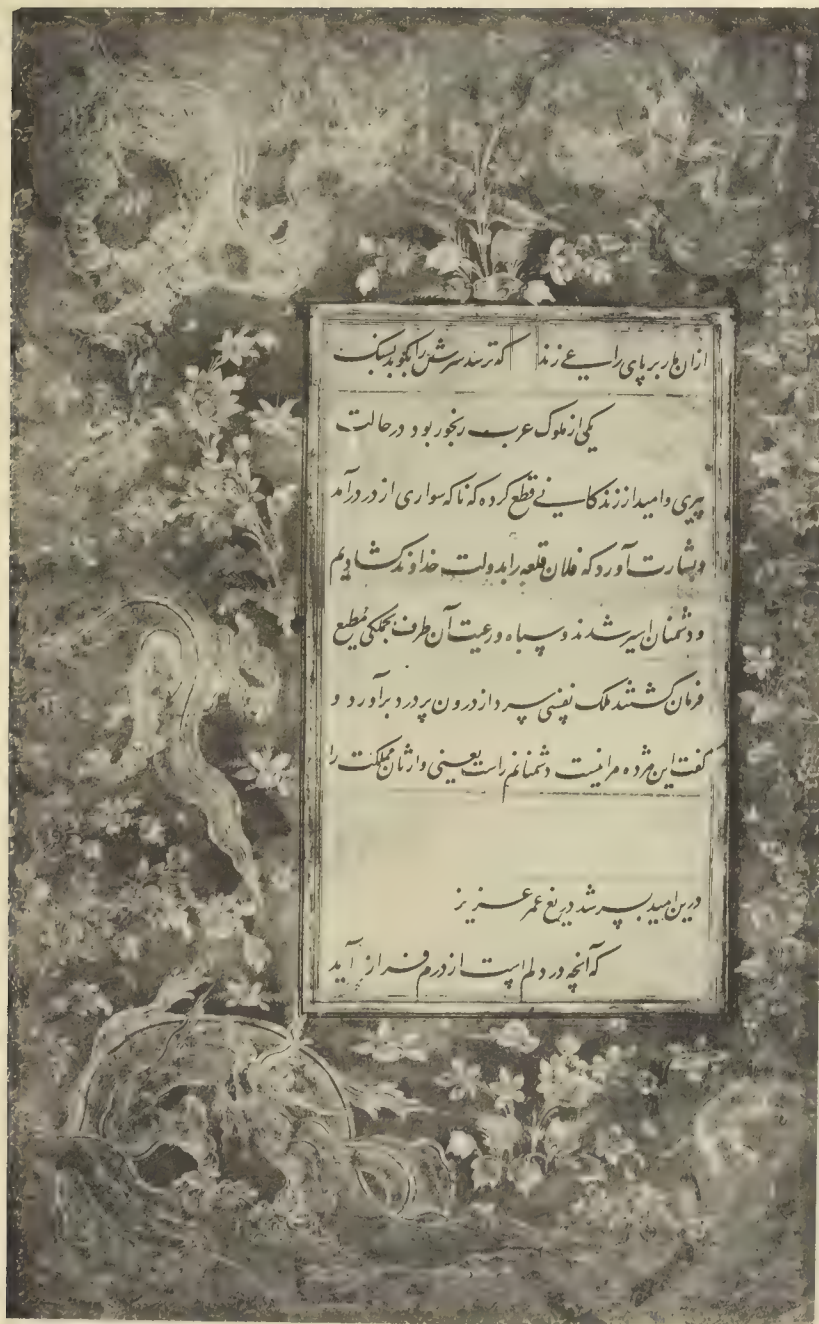 ازان مار بر پای راعی زند که ترسد سرش را بکوبد بسنگ
یکی از ملوک عرب رنجور بود در حالت
پیری و امید از زندگانی قطع کرده که ناکه سواری از در درآمد
و بشارت آورد که فلان قلعه را بدولت خداوند کشادیم
و دشمنان اسیر شدند و سپاه و رعیت آن طرف بجملگی مطیع
فرمان کشتند ملک نفسی سرد از درون پر درد برآورد و
کفت این مژده مرا نیست دشمنانم راست یعنی وارثان مملکت را
درین امید بسر شد دریغ عمر عزیز
که آنچه در دلم است از درم فراز آید